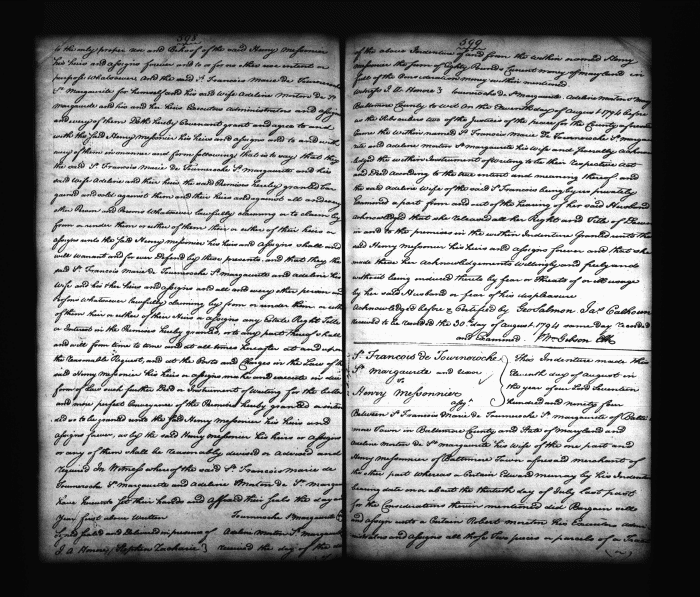 598
to the only proper use and Behoof of the said Henry Messonnier
his heirs and assigns forever and to or for no other use intent or
purpose Whatsoever And the said St Francois Marie de Tourneroche
St Marguerite for himself and his said wife Adelaine Moton De St
Marguerite and his and her heirs Executors Administrators and assigns
and every of them Doth hereby Covenant grant and agree to and
with the said Henry Messonier his heirs and assigns and to and with
every of them in manner and form following that is to say that they
the said St Francois Marie de Tourneroche St Marguerite and his
said wife Adelaine and their heirs the said Premises hereby granted
and sold against them and their heirs and against all and every
other Person and Persons Whatsoever lawfully claiming or to claim by
from or under them or either of them their or either of their heirs or
assigns unto the said Henry Messonier his heirs and Assigns shall and
will warrant and for ever defend by these presents and that they the
said St Francois Marie de Tourneroche St Marguerite and Adelaine his
wife and his the heirs and assigns and all and every other person and
Persons Whatsoever lawfully claiming by from or under them or either
of them their or either of their Heirs or assigns any Estate Right Title
or Interest in the Premises hereby granted or to any part thereof shall
and will from time to time and at all times hereafter at and upon
the reasonable Request, and at the Costs and Charges in the Law of the
said Henry Messonier his heirs or assigns make and execute in due
form of Law such further Deed or Instrument of Writing for the better
and more perfect Conveyance of the Premises hereby granted
to be granted unto the said Henry Messonier his heirs and
assigns forever, as by the said Henry Messonier his heirs or Assigns
or any of them shall be reasonably devised or advised and
required In Witness whereof the said St Francois Marie de
Tourneroche St Marguerite and Adelaine Moton de St Marguerite
have hereunto set their hands and affixed their seals the day and
Year first above Written Tourneroche St Marguerite
Signed sealed and Delivered in presence of Adelaine Moton St Marguerite
Stephen Zacharie } received the day of the
599
of the above Indenture of and from the within named Henry
Messonier the sum of Eighty Pounds Current money of Maryland in
full of the Consideration money within mentioned
Witness Tourneroche de St Marguerite, Adelaine Moton
Baltimore County to wit On the Eleventh day of August 1794 before
us the subscribers two of the Justices of the Peace for the County aforesaid
came the within named St Francois Marie de Tourneroche St Marguerite
and Adelaine Moton St Marguerite his wife and severally acknow
ledged the within Instrument of Writing to be their respective Act
and Deed according to the true intent and meaning thereof and
the said Adelaine Wife of the said St Francois being by us privately
Examined apart from and out of the hearing of her said Husband
acknowledged that she released all her Right and Title of Dower
in and to the premises in the within Indenture granted unto the
said Henry Messonier his heirs and assigns forever and that she
made these her acknowledgements willingly and freely and
without being induced thereto by fear or threats of or ill usage
by her said Husband or fear of his displeasure
Acknowledged before & Certified by Geo Salmon Jas Calhoun
received to be recorded the 30th day of August 1794 same day recorded
and Examined Wm Gibson Clk
St Francois de Tourneroche
St Marguerite and wife
to
Henry Messonnier
This Indenture made this
Eleventh day of August in
the year of our Lord Seventeen
hundred and ninety four
Between St Francois Marie de Tourneroche St Marguerite of Balti
more Town in Baltimore County and State of Maryland and
Adelaine Moton de St Marguerite his wife of the one part and
Henry Messonnier of Baltimore Town aforesaid merchant of
the other part whereas a Certain Edward Murray by his Indenture
bearing date on or about the thirtieth day of July last past
for the Considerations therein mentioned did Bargain sell
and assign unto a Certain Robert Moreton his Executors admin
istrators and assigns all those two pieces or parcels of a Tract